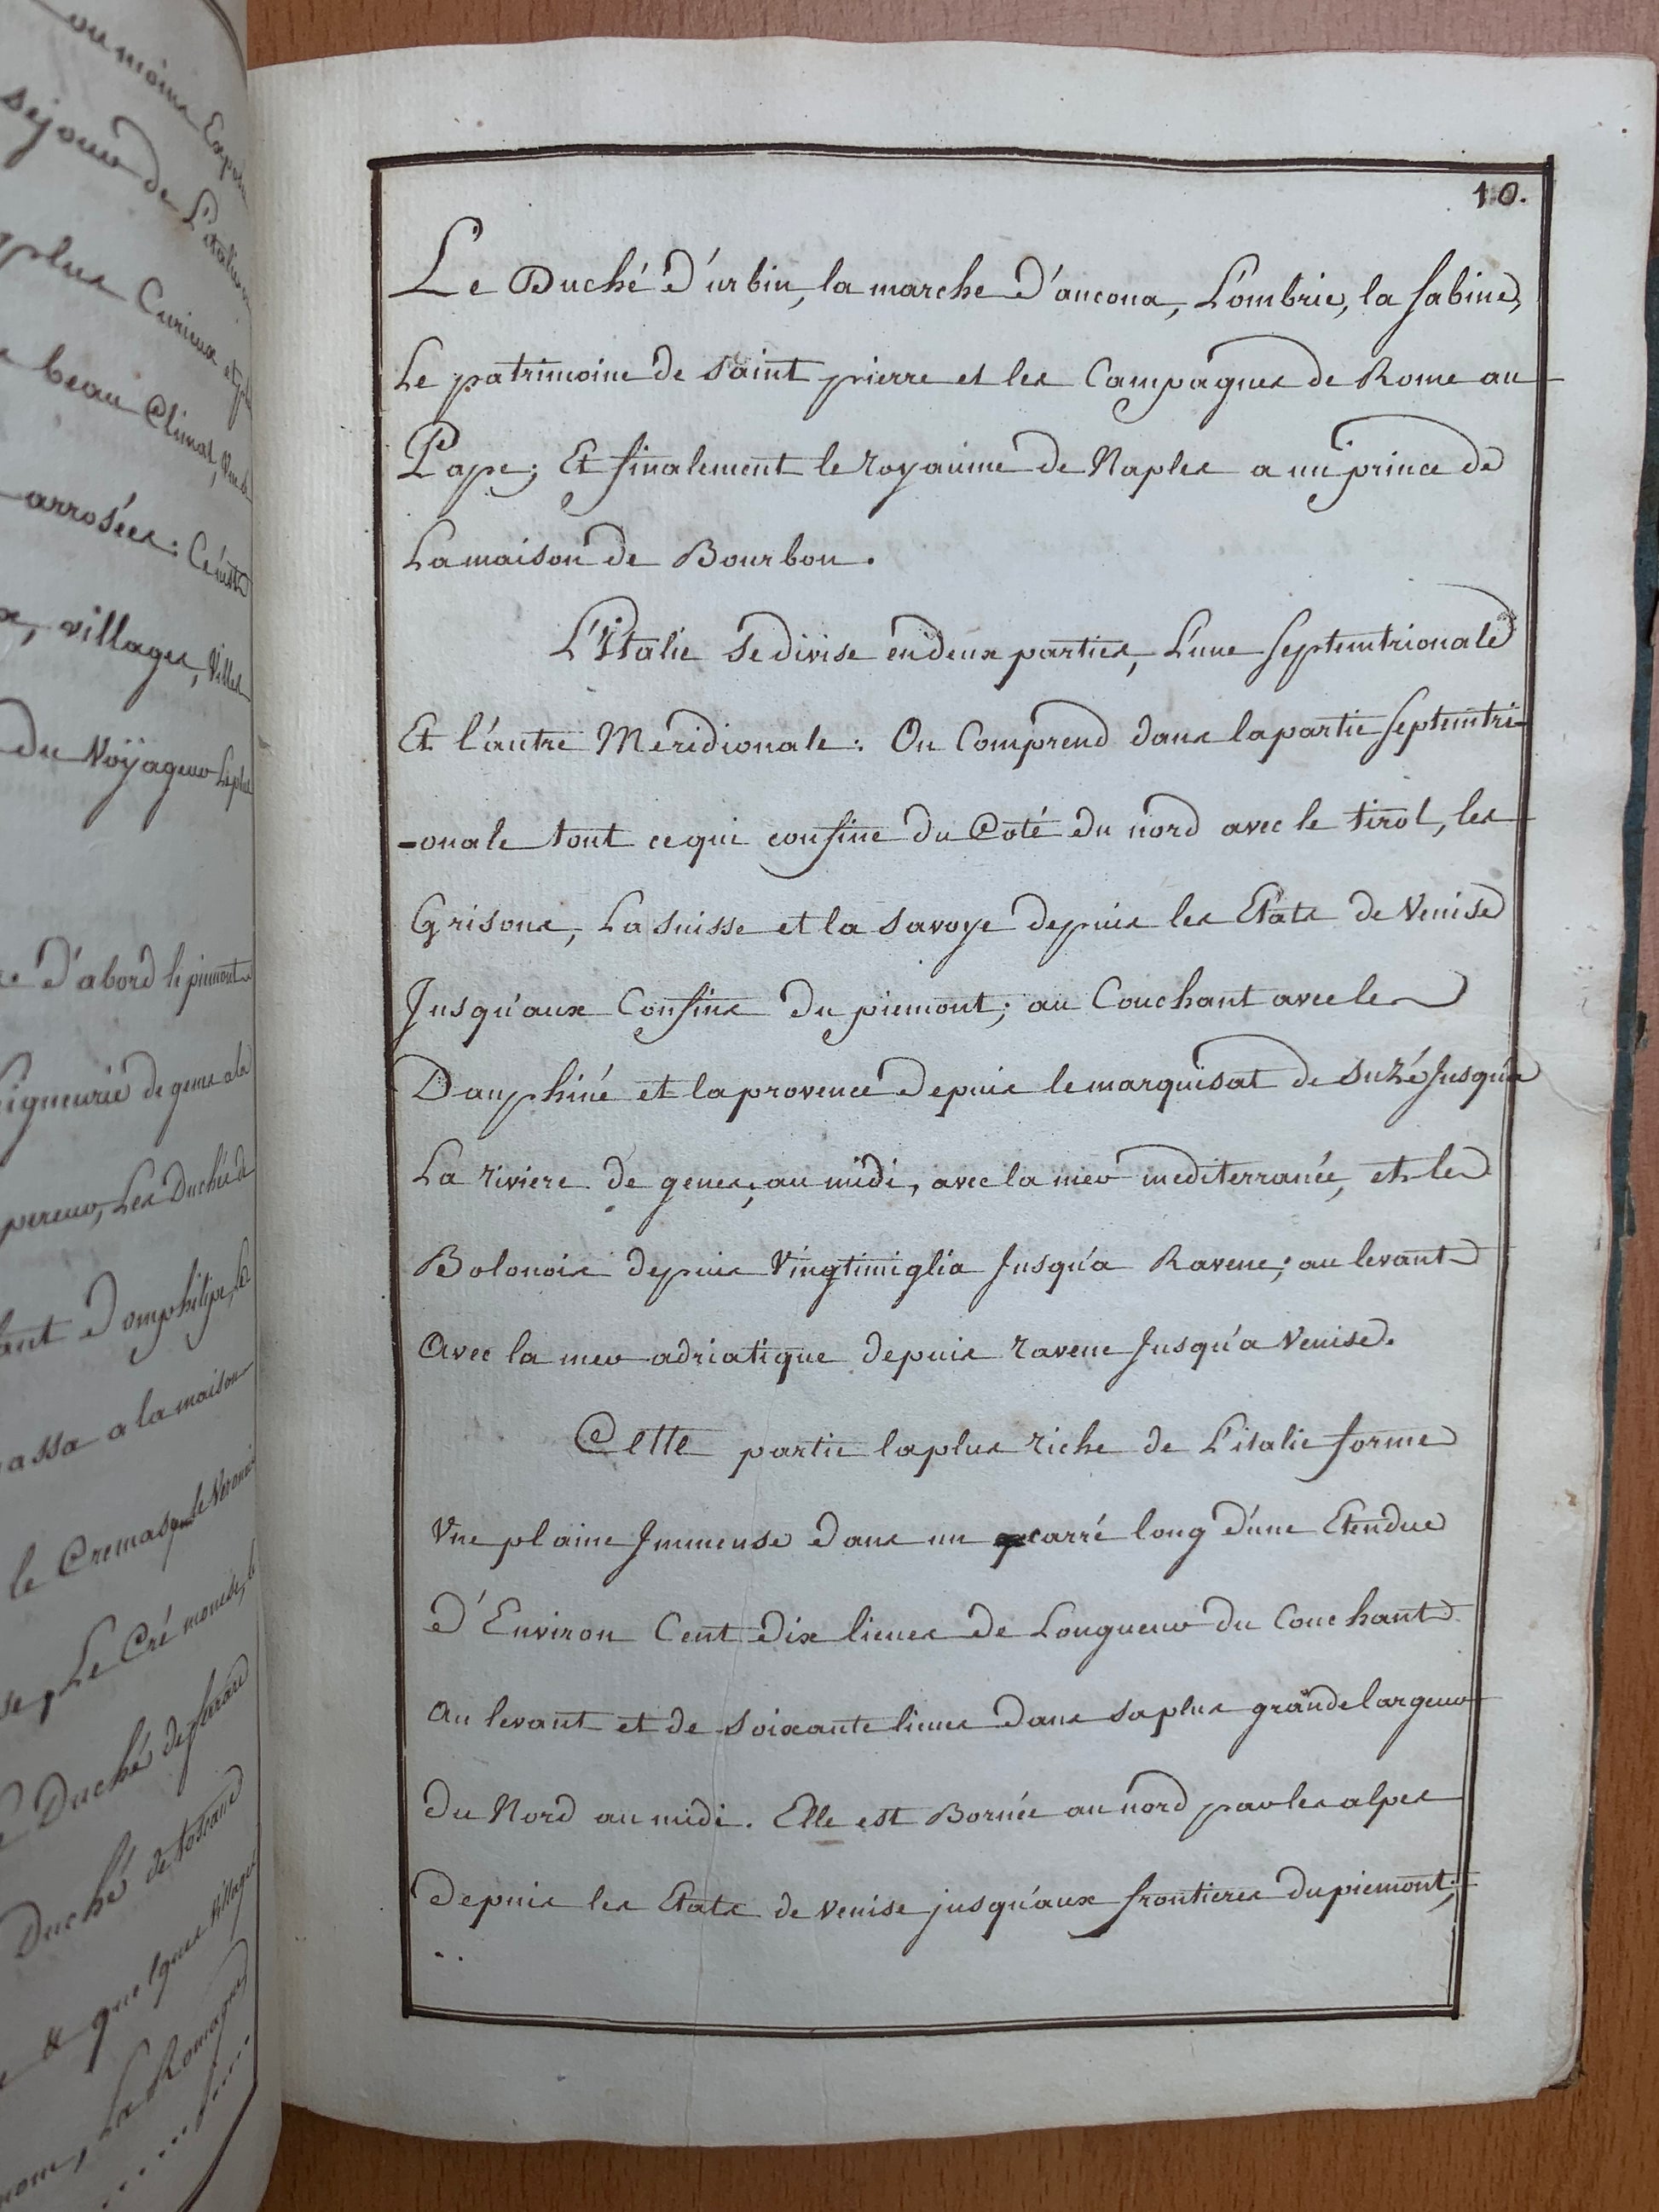 ou moins
sejour de L'italien
plus Curieux et
beau Climat,
arrosées:
villages, Villes
du Voÿageur
D'abord le piemont
de genes
Les Duchés de
Domphilipe,
assa a la maison
le Cremasque
Le Crémonese,
Duché de
Duché de toscane
& quelques Villages
La Romagne
10.
Le Duché D'urbin, la marche D'ancona, L'ombrie, la sabine,
Le patrimoine de saint pierre et les Campagnes de Rome au
Pape; Et finalement le royaume de Naples a un prince de
La maison de Bourbon.
L'Italie se divise en deux parties, L'une septemtrionale
Et l'autre Meridionale: On Comprend dans la partie septemtri-
-onale tout ce qui confine du Coté du nord avec le tirol, les
Grisons, La suisse et la savoye depuis les Etats de Venise
Jusqu'aux Confins du piemont; au Couchant avec le
Dauphiné et la provence depuis le marquisat de suze Jusqu'a
La riviere de genes; au midi, avec la mer mediterranée, et le
Bolonois depuis Vingtimiglia Jusqu'a Ravene; au levant
Avec la mer adriatique depuis ravene Jusqu'a Venise.
Cette partie la plus riche de L'italie forme
Vne plaine Jmmense dans un carré long d'une Etendue
d'Environ Cent dix lieues de Longueur du Couchant
Au levant et de soixante lieues dans sa plus grande largeur
du Nord au midi. Elle est Bornée au nord par les alpes
depuis les Etats de venise jusqu'aux frontieres du piemont;